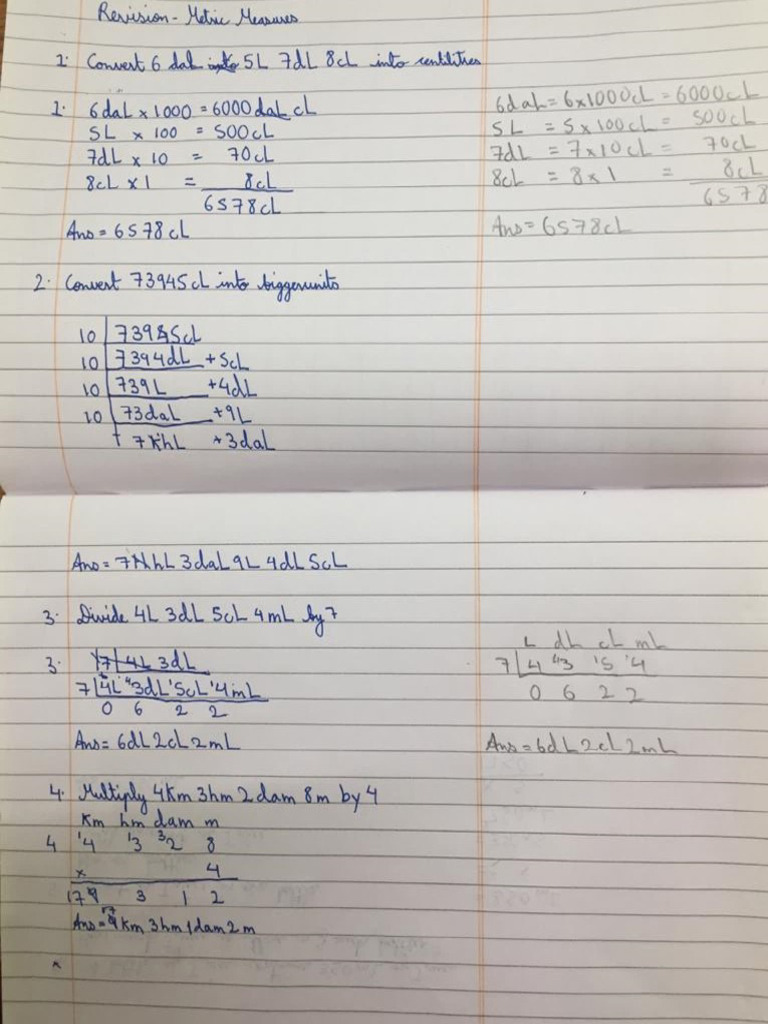 Revision - Metric Measures
1. Convert 6 daL 5L 7dL 8cL into centilitres
1. 6daL x 1000 = 6000 daL cL
5L x 100 = 500cL
7dL x 10 = 70cL
8cL x 1 = 8cL
6578cL
Ans = 6578cL
6daL = 6x1000cL = 6000cL
5L = 5x100cL = 500cL
7dL = 7x10cL = 70cL
8cL = 8x1 = 8cL
6578
Ans = 6578cL
2. Convert 73945cL into bigger units
10 73945cL
10 7394dL +5cL
10 739L +4dL
10 73daL +9L
7 hL +3daL
Ans = 7 hL 3daL 9L 4dL 5cL
3. Divide 4L 3dL 5cL 4mL by 7
3. 7 4L 3dL
7 4L 43dL 15cL 14mL
0 6 2 2
Ans = 6dL 2cL 2mL
L dL cL mL
7 4 43 15 14
0 6 2 2
Ans = 6dL 2cL 2mL
4. Multiply 4km 3hm 2dam 8m by 4
Km hm dam m
4 14 13 32 8
x 4
17 3 1 2
Ans = 17km 3hm 1dam 2m
x